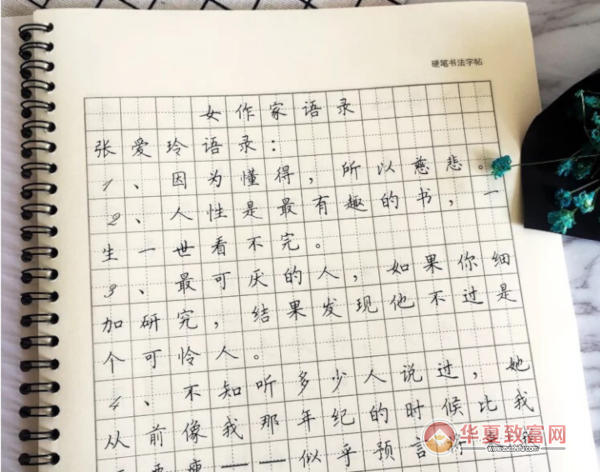 硬笔书法字帖
女作家语录
张爱玲语录：
1、因为懂得，所以慈悲。
2、人性是最有趣的书，一
生一世看不完。
3、最可厌的人，如果你细
加研究，结果发现他不过是
个可怜人。
4、不知听多少人说过，她
从前像我那年纪的时候比我
瘦——似乎预言
华夏致富网